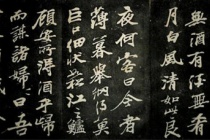 無酒有酒無肴
月白風清如此良
夜何客曰今者
薄暮舉網得魚
巨口細狀松江之鱸
顧安所得酒乎歸
而謀諸婦婦曰